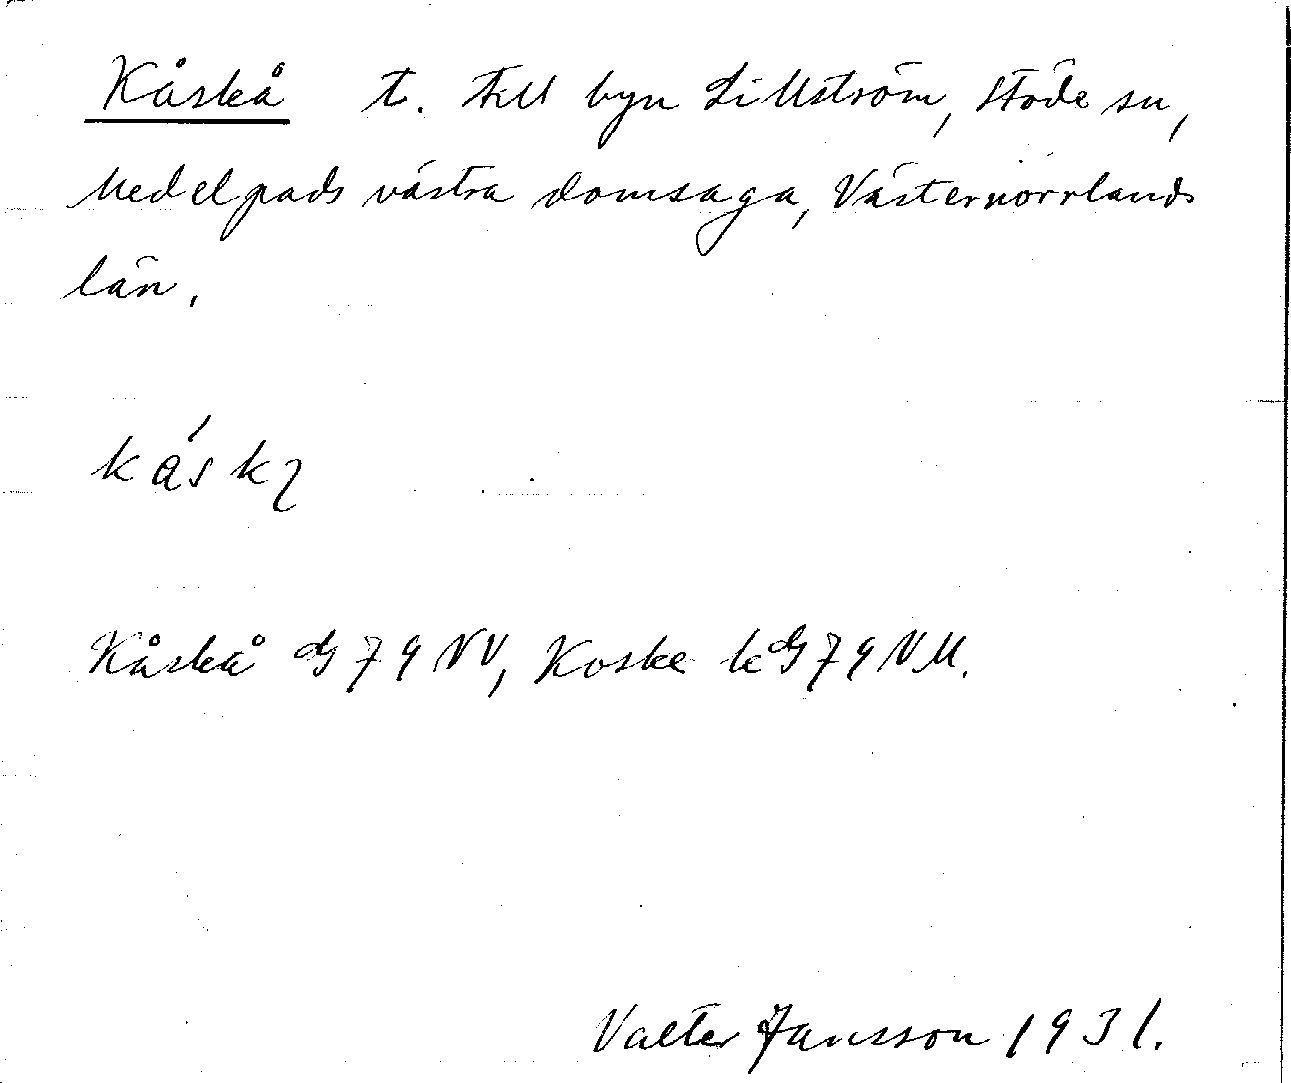 Kåskå t. till byn Lillström, Stöde sn,
Medelpads västra domsaga, Västernorrlands
län.
Kåskå G 79 NV, Koske k G 79 NV.
Valter Jansson 1931.